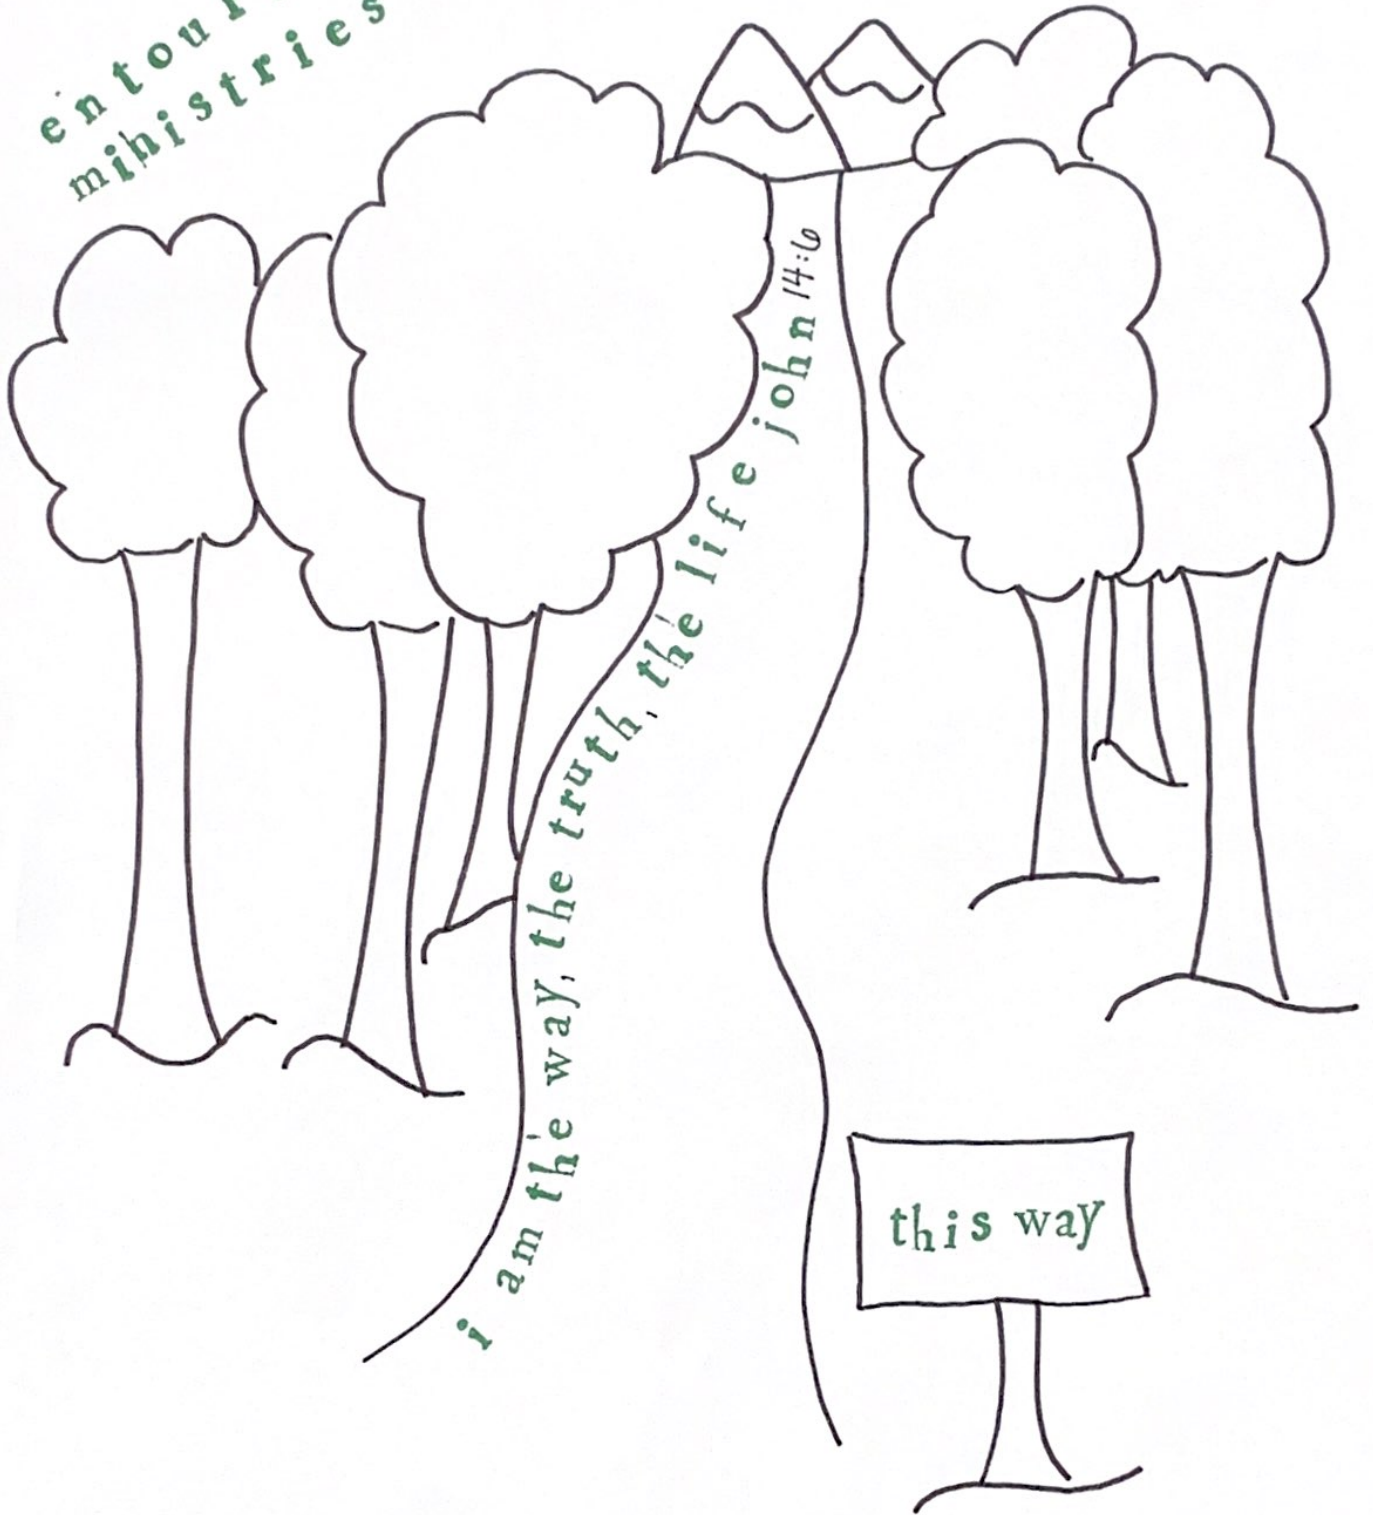 ministries
i am the way, the truth, the life john 14:6
this way